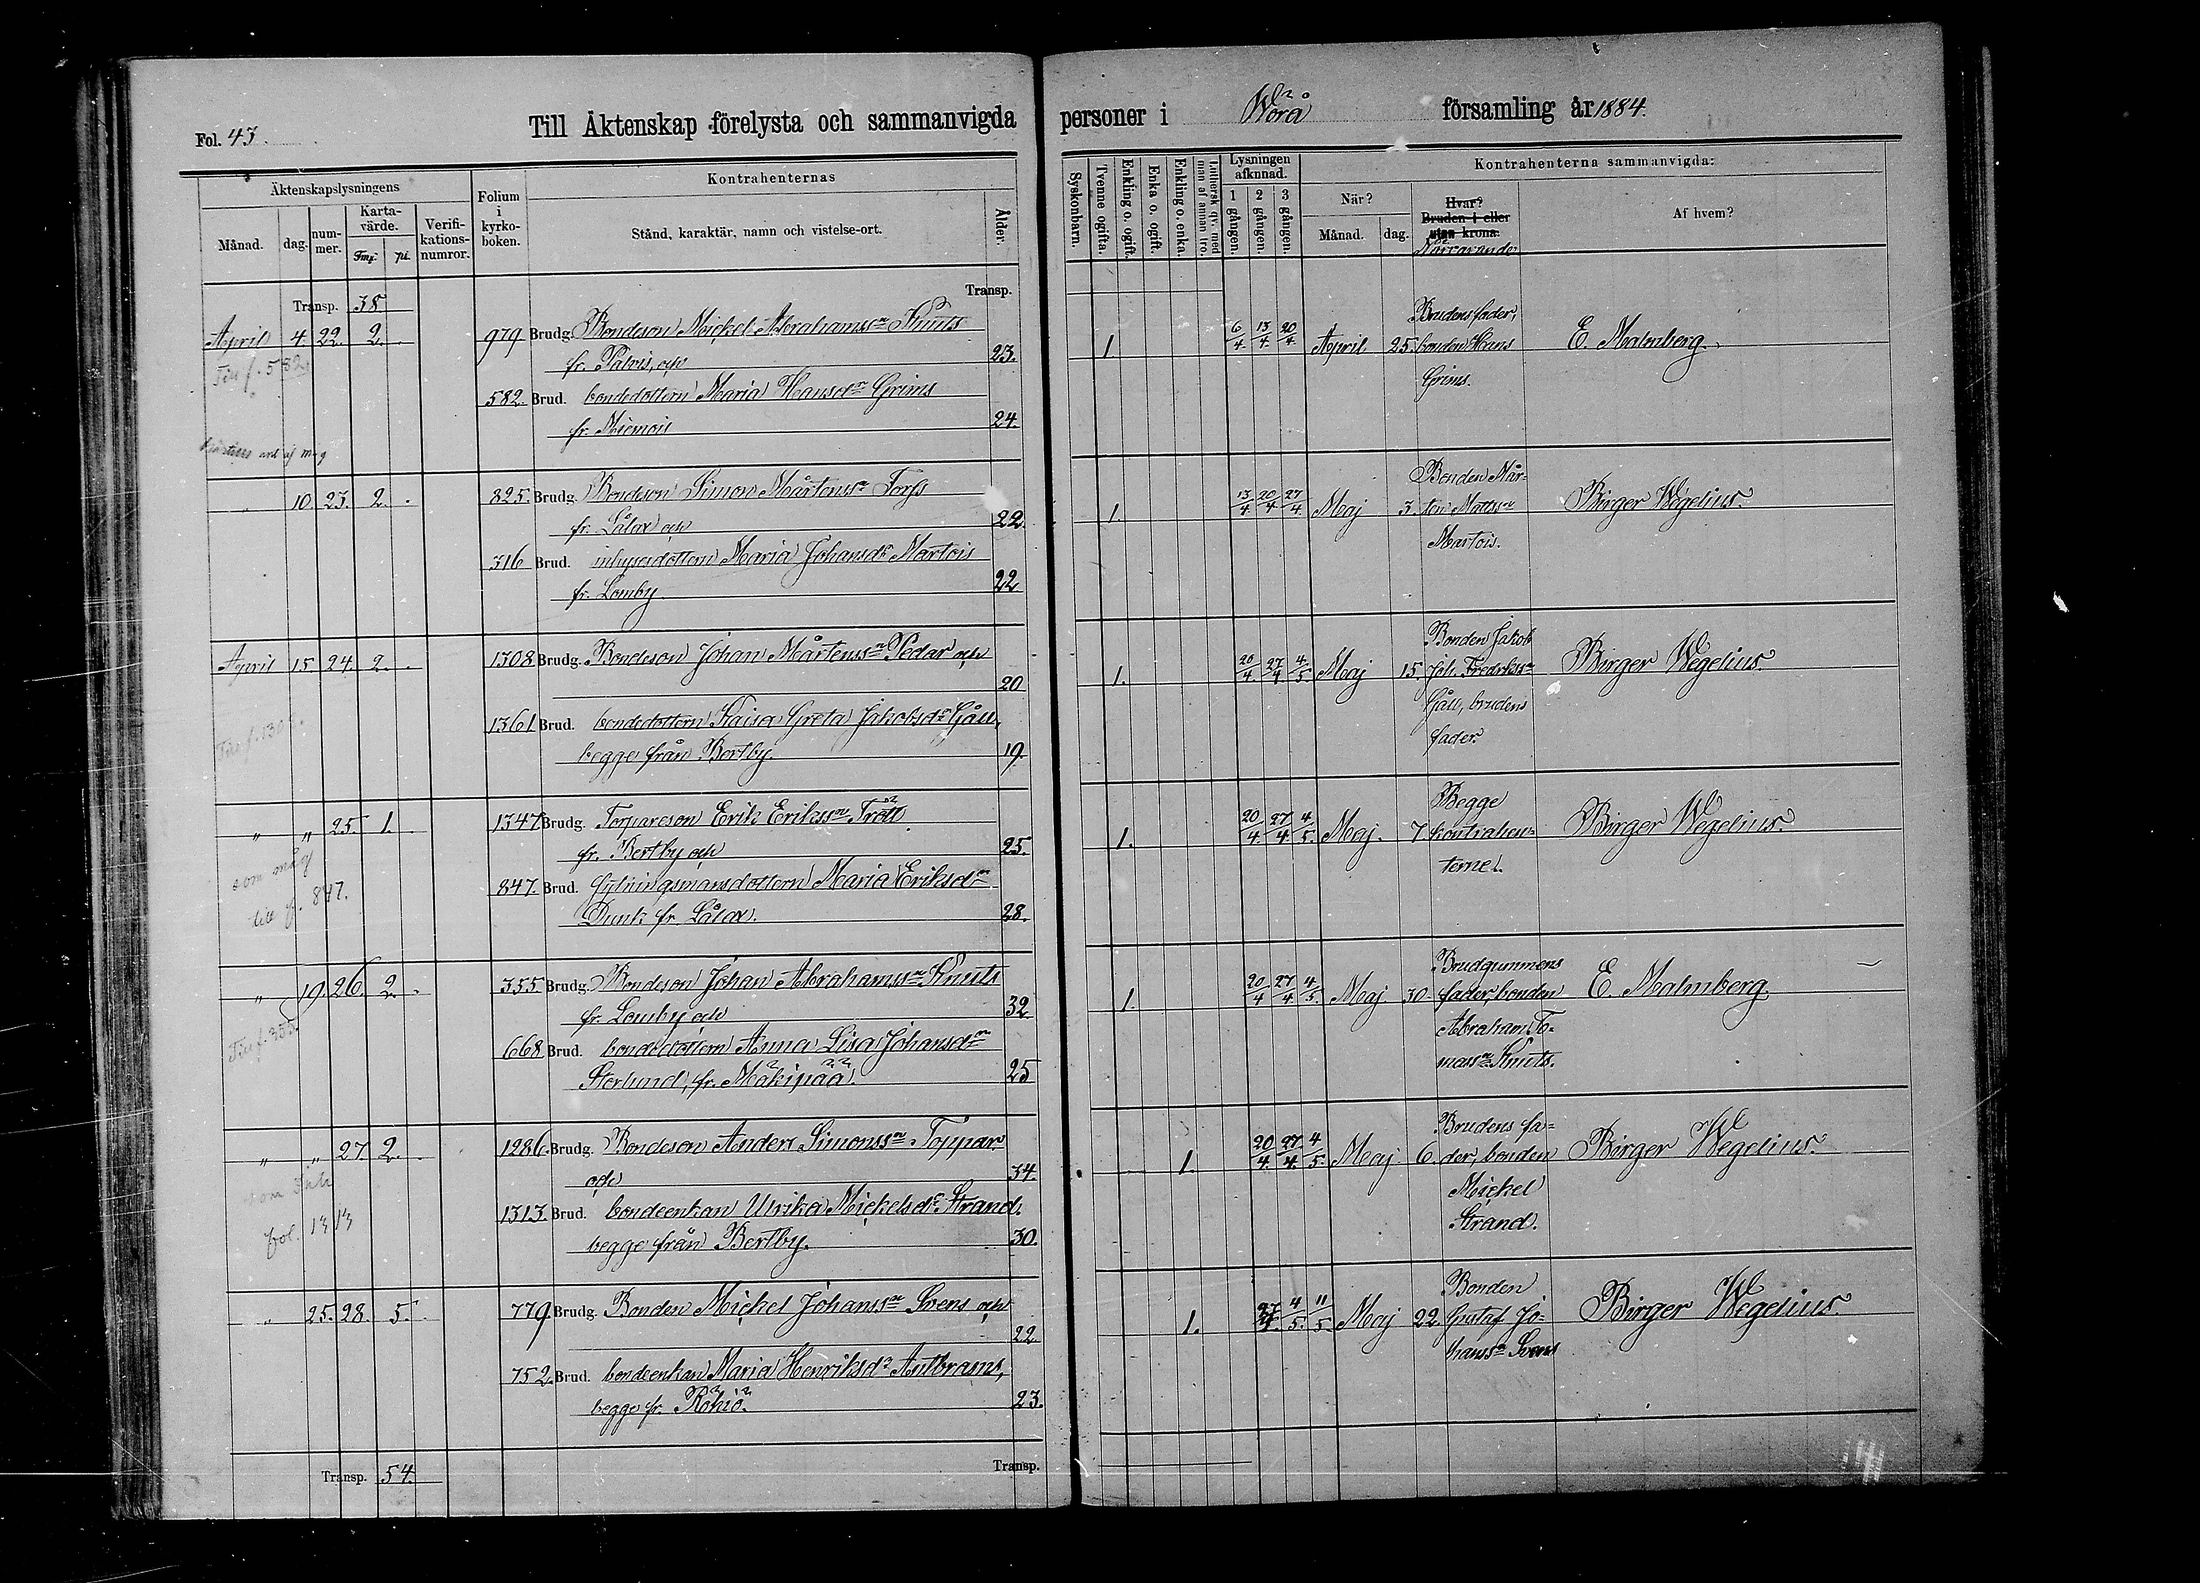 Fol. 43
Till Äktenskap förelysta och sammanvigda personer i Wörå församling år 1884.
Äktenskapslysningens
Månad. dag. nummer. Kartavärde. Fmf. pi. Verifikationsnumror.
Folium i kyrkoboken.
Kontrahenternas
Stånd, karaktär, namn och vistelse-ort.
Ålder.
Syskonbarn.
Tvenne ogifta.
Enkling o. ogift.
Enka o. ogift.
Enkling o. enka.
Luthersk qv. med man af annan tro.
Lysningen afkunnad.
1 gången. 2 gången. 3 gången.
Kontrahenterna sammanvigda:
När? Månad. dag.
Hvar? Bruden i eller utan krona.
Närvarande:
Af hvem?
Transp. 38 Transp.
April 4. 22. 2. 979 Brudg. Bondeson Mickel Abrahamssn Knuts
fr. Palvis, och 23.
582. Brud. bondedottern Maria Hansdr Grims
fr. Miemois 24.
Tin f. 582
1 6/4 13/4 20/4 April 25. Brudens fader,
bonden Hans
Grims.
E. Malmberg.
" 10. 23. 2. 825. Brudg. Bondeson Simon Mårtenssn Torfs
fr. Lålax och 22.
316 Brud. inhysesdottern Maria Johansdr Martois
fr. Lomby 22
1. 13/4 20/4 27/4 Maj 3. Bonden Mår-
ten Mattssn
Martois.
Birger Wegelius.
April 15. 24. 2. 1308 Brudg. Bondeson Johan Mårtenssn Pedar och
20
1361 Brud. bondedottern Kaisa Greta Jakobsdr Gåll,
begge från Bertby. 19.
1. 20/4 27/4 4/5 Maj 15. Bonden Jakob
Joh. Fredrikssn
Gåll, brudens
fader.
Birger Wegelius.
" " 25. 1. 1347 Brudg. Torpareson Erik Erikssn Tröll
fr. Bertby och 25.
847. Brud. fylningsmansdottern Maria Eriksdr
Dunk fr. Lålax. 28.
som måg
till f. 847.
1. 20/4 27/4 4/5 Maj. 7 Begge
kontrahen-
terne.
Birger Wegelius.
" 19. 26. 2. 355. Brudg. Bondeson Johan Abrahamssn Knuts
fr. Lomby och 32
668 Brud. bondedottern Anna Lisa Johansdr
Sterlund, fr. Mäkipää. 25
Tin f. 355
1. 20/4 27/4 4/5 Maj 30 Brudgummens
fader, bonden
Abraham To-
massn Knuts.
E. Malmberg.
" " 27 2. 1286. Brudg. Bondeson Anders Simonssn Toppar
och 34.
1313. Brud. bondeenkan Ulrika Mickelsdr Strand.
begge från Bertby. 30.
fol. 1313
1. 20/4 27/4 4/5 Maj 6. Brudens fa-
der, bonden
Mickel
Strand.
Birger Wegelius.
" 25. 28. 5. 779. Brudg. Bonden Mickel Johanssn Svens och
22
752. Brud. bondeenkan Maria Henriksdr Antbrams,
begge fr. Röhiö. 23.
1. 27/4 4/5 11/5 Maj 22. Bonden
Gustaf Jo-
hanssn Svens
Birger Wegelius.
Transp. 54. Transp.